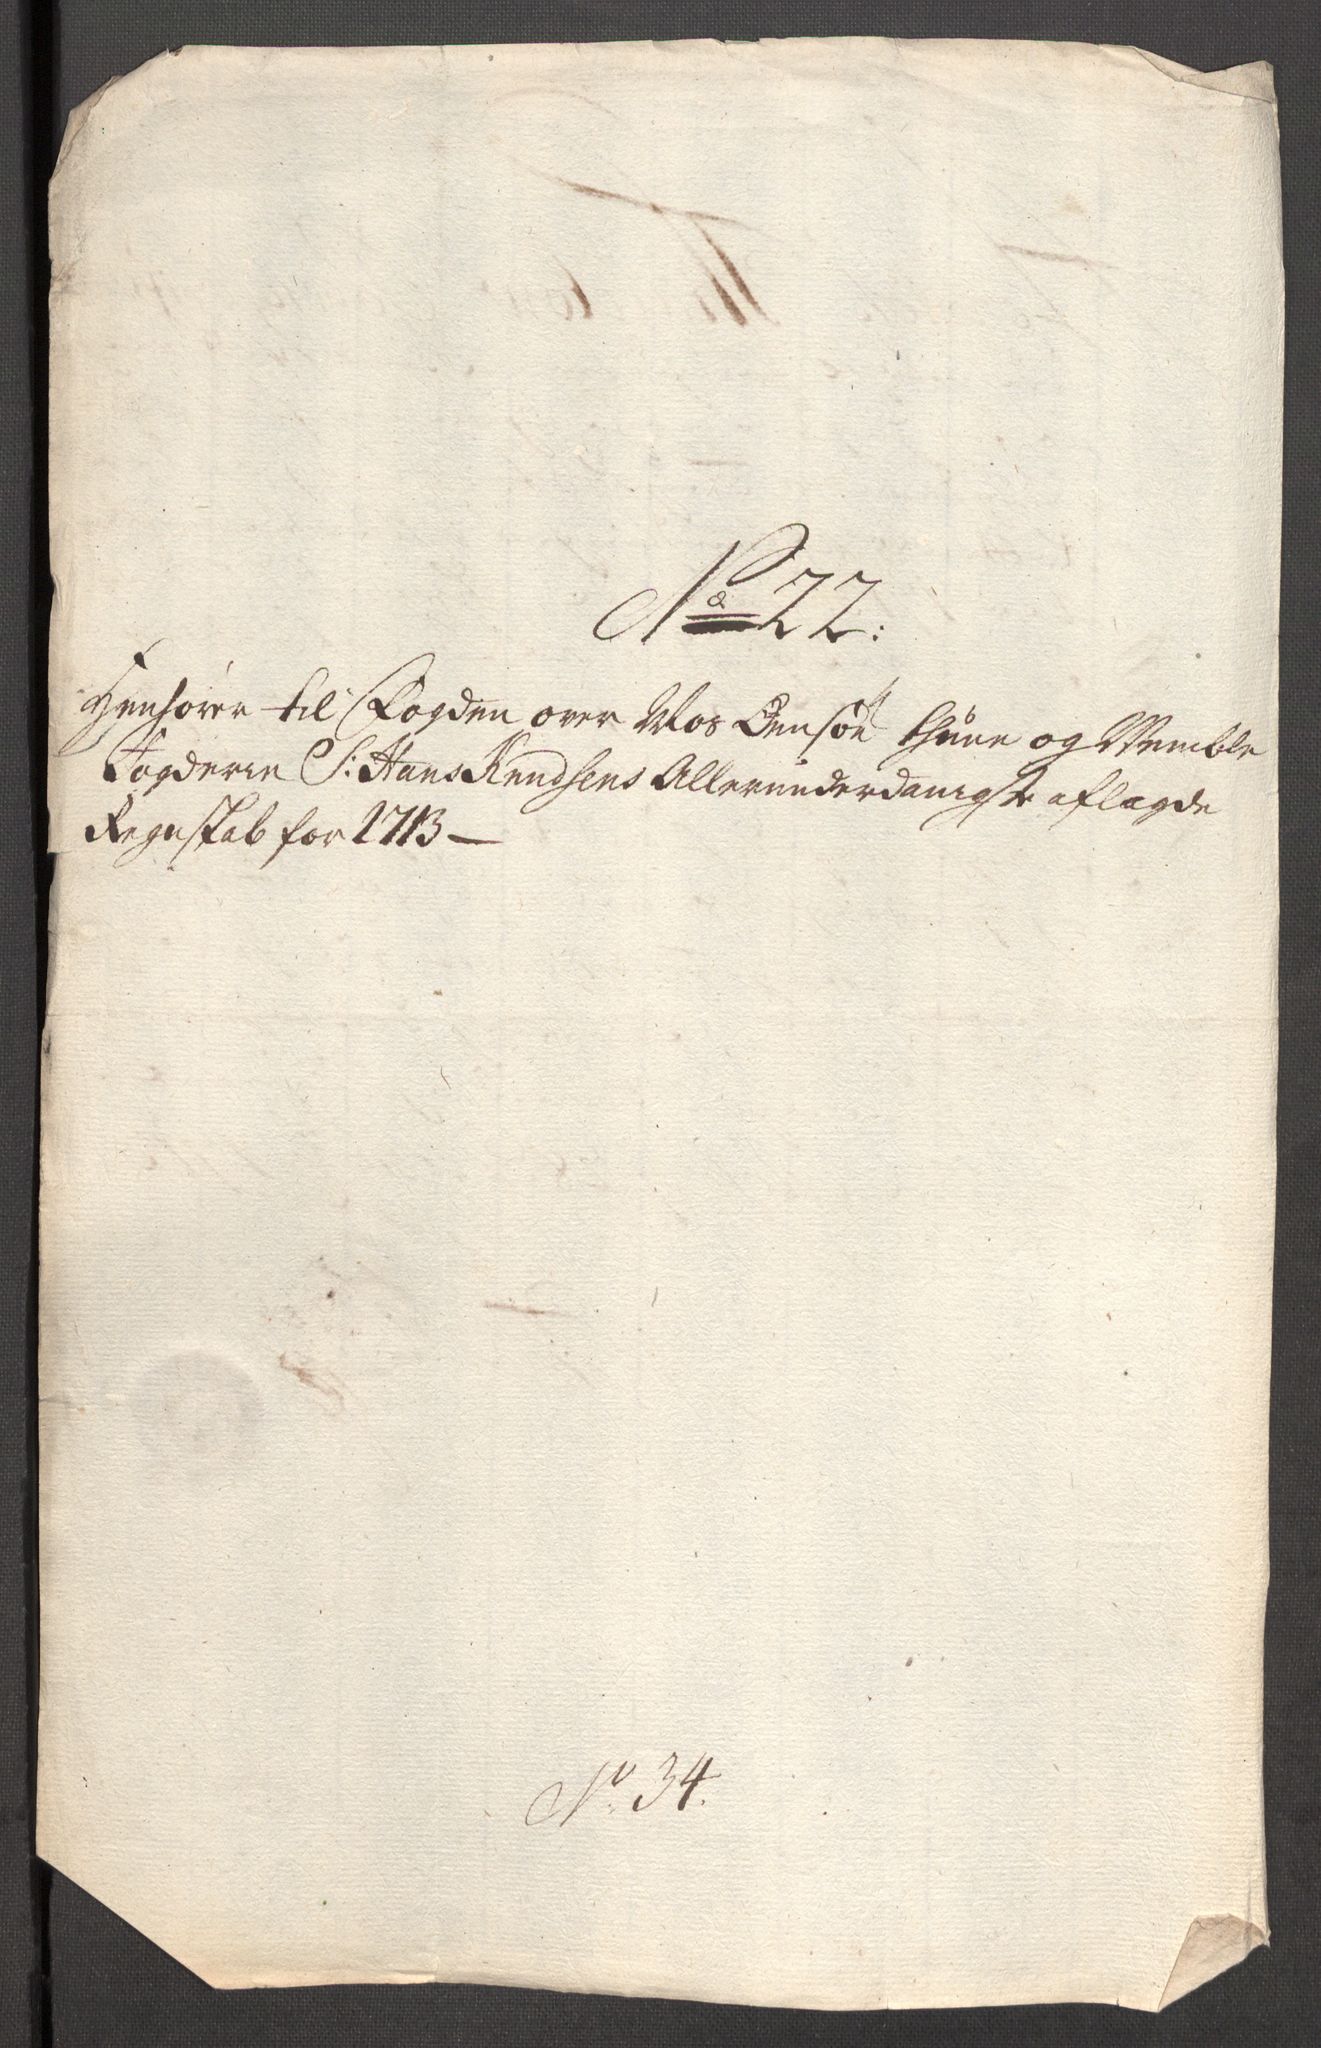 No 22:
Henhører til Fogden over Mos Oensøe thune og Wemble
Fogderie S: Hans Knudsens Allerunderdanigste aflagde
Regnskab for 1713 —
No. 34.